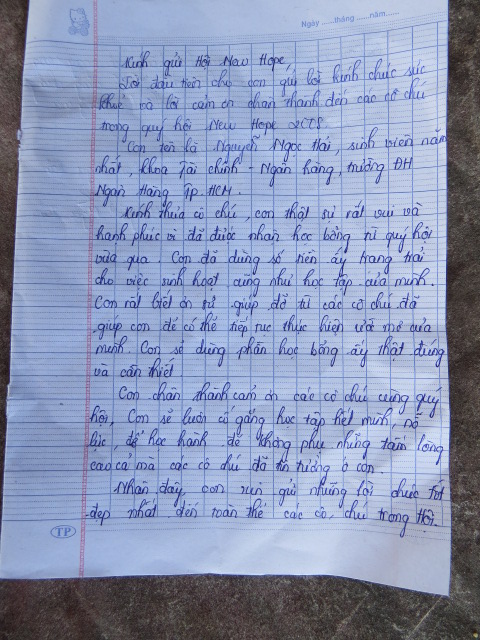 Ngày ..... tháng ..... năm ......
Kính gửi Hội New Hope,
Lời đầu tiên cho con gửi lời kính chúc sức
khoẻ và lời cảm ơn chân thành đến các cô chú
trong quý hội New Hope
Con tên là Nguyễn Ngọc Hải, sinh viên năm
nhất, khoa Tài chính - Ngân hàng, trường ĐH
Ngân Hàng Tp.HCM.
Kính thưa cô chú, con thật sự rất vui và
hạnh phúc vì đã được nhận học bổng từ quý hội
vừa qua. Con đã dùng số tiền ấy trang trải
cho việc sinh hoạt cũng như học tập của mình.
Con rất biết ơn sự giúp đỡ từ các cô chú đã
giúp con để có thể tiếp tục thực hiện ước mơ của
mình. Con sẽ dùng phần học bổng ấy thật đúng
và cần thiết
Con chân thành cảm ơn các cô chú cùng quý
hội, Con sẽ luôn cố gắng học tập hết mình, nỗ
lực, để học hành để không phụ những tấm lòng
cao cả mà các cô chú đã tin tưởng ở con.
Nhân đây, con xin gửi những lời chúc tốt
đẹp nhất đến toàn thể các cô, chú trong Hội.
TP